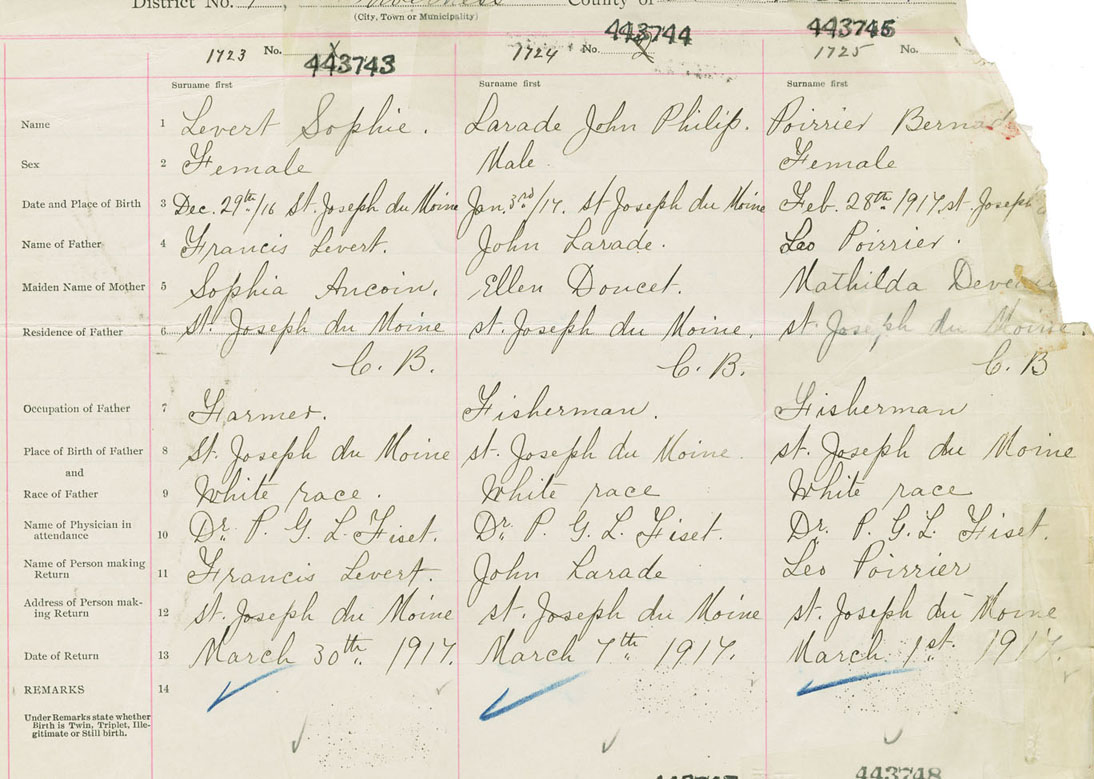 District No. County of
(City, Town or Municipality)
443744 443745
1723 No. 443743 1724 No. 1725 No.
Surname first Surname first Surname first
Name 1 Levert Sophie. Larade John Philip. Poirrier Bernad
Sex 2 Female Male. Female
Date and Place of Birth 3 Dec. 29th/16 St. Joseph du Moine Jan. 3rd/17. St Joseph du Moine Feb. 28th 1917. st. Joseph
Name of Father 4 Francis Levert. John Larade. Leo Poirrier.
Maiden Name of Mother 5 Sophia Aucoin. Ellen Doucet. Mathilda
Residence of Father 6 St. Joseph du Moine st. Joseph du Moine. st Joseph du Moine.
C. B. C. B. C. B
Occupation of Father 7 Farmer. Fisherman. Fisherman
Place of Birth of Father 8 St. Joseph du Moine st. Joseph du Moine. st. Joseph du Moine
and
Race of Father 9 White race. White race White race
Name of Physician in
attendance 10 Dr. P. G. L. Fiset. Dr. P. G. L. Fiset. Dr. P. G. L. Fiset.
Name of Person making
Return 11 Francis Levert. John Larade Leo Poirrier
Address of Person mak-
ing Return 12 st. Joseph du Moine st. Joseph du Moine st. Joseph du Moine
Date of Return 13 March 30th 1917. March 7th 1917. March 1st. 1917.
REMARKS 14
Under Remarks state whether
Birth is Twin, Triplet, Ille-
gitimate or Still birth.
443748